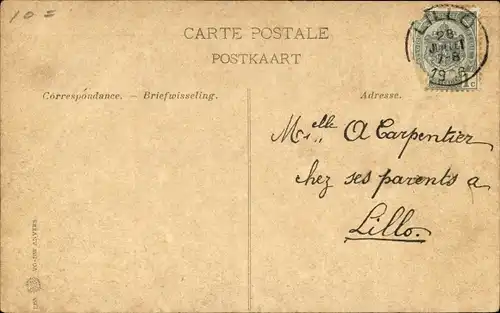 10=
CARTE POSTALE
POSTKAART
LILLO
28
7-8
Correspondance. — Briefwisseling.
Adresse.
Melle A Carpentier
chez ses parents a
Lillo.
ANVERS